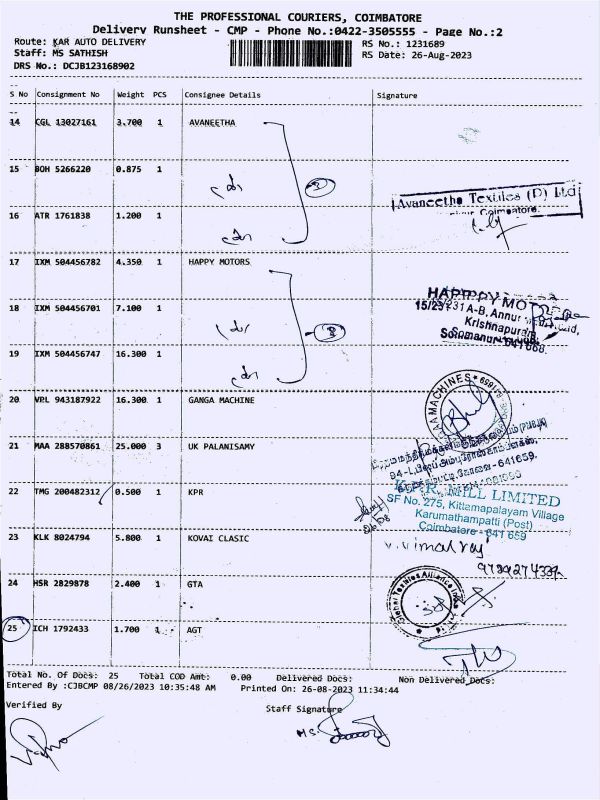 THE PROFESSIONAL COURIERS, COIMBATORE
Delivery Runsheet - CMP - Phone No.:0422-3505555 - Page No.:2
Route: KAR AUTO DELIVERY
RS No.: 1231689
Staff: MS SATHISH
RS Date: 26-Aug-2023
DRS No.: DCJB123168902
S No Consignment No Weight PCS Consignee Details Signature
14 CGL 13027161 3.700 1 AVANEETHA
15 BOH 5266220 0.875 1
Avaneetha Textiles (P) Ltd
Coimbatore.
16 ATR 1761838 1.200 1
17 IXM 504456782 4.350 1 HAPPY MOTORS
18 IXM 504456701 7.100 1
19 IXM 504456747 16.300 1
20 VPL 943187922 16.300 1 GANGA MACHINE
21 MAA 288570861 25.000 3 UK PALANISAMY
22 TMG 200482312 0.500 1 KPR
K.P.R. MILL LIMITED
SF No. 275, Kittamapalayam Village
Karumathampatti (Post)
Coimbatore - 641 659
23 KLK 8024794 5.800 1 KOVAI CLASIC
V. Vimalraj
24 HSR 2829878 2.400 1 GTA
25 ICH 1792433 1.700 1 AGT
Total No. Of Docs: 25 Total COD Amt: 0.00 Delivered Docs: Non Delivered Docs:
Entered By :CJBCMP 08/26/2023 10:35:48 AM Printed On: 26-08-2023 11:34:44
Verified By
Staff Signature